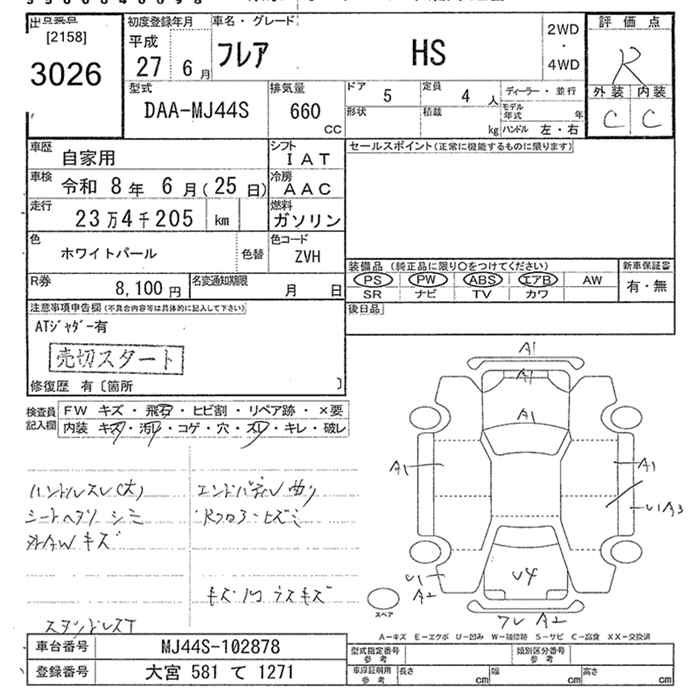 出品票点
[2158]
3026
初度登録年月
平成
27 6月
車名・グレード
フレア HS
2WD
・
4WD
評価点
R
外装 内装
C C
型式
DAA-MJ44S
排気量
660
CC
ドア
5
定員
4 人
形状
積載
kg
ディーラー・並行
モデル年式
年
ハンドル 左・右
車歴
自家用
シフト
IAT
車検
令和 8年 6月(25日)
冷房
AAC
走行
23万4千205 km
燃料
ガソリン
色
ホワイトパール
色替
色コード
ZVH
R券
8,100円
名変通知期限
月 日
セールスポイント(正常に機能するものに限ります)
装備品 (純正品に限り○をつけてください)
PS PW ABS エアB AW
SR ナビ TV カワ
新車保証書
有・無
後日品
注意事項申告欄(不具合内容等は具体的に記入して下さい)
ATジャダー有
売切スタート
修復歴 有〔箇所 〕
検査員
記入欄
FW キズ・飛石・ヒビ割・リペア跡・×要
内装 キズ・汚レ・コゲ・穴・スレ・キレ・破レ
ハンドルスレ(大)
シートヘタリ シミ
外AWキズ
エンドパネル曲り
Rフロアーヒズミ
スタンドレスT
A1
A1
A1
A1
A1
U1A3
U1
A2
U4
A2
スペア
A-キズ E-エクボ U-凹み W-補修跡 S-サビ C-腐食 XX-交換済
車台番号
MJ44S-102878
登録番号
大宮 581 て 1271
型式指定番号
参考
類別区分番号
参考
車庫証明用
参考
長さ cm
幅 cm
高さ cm